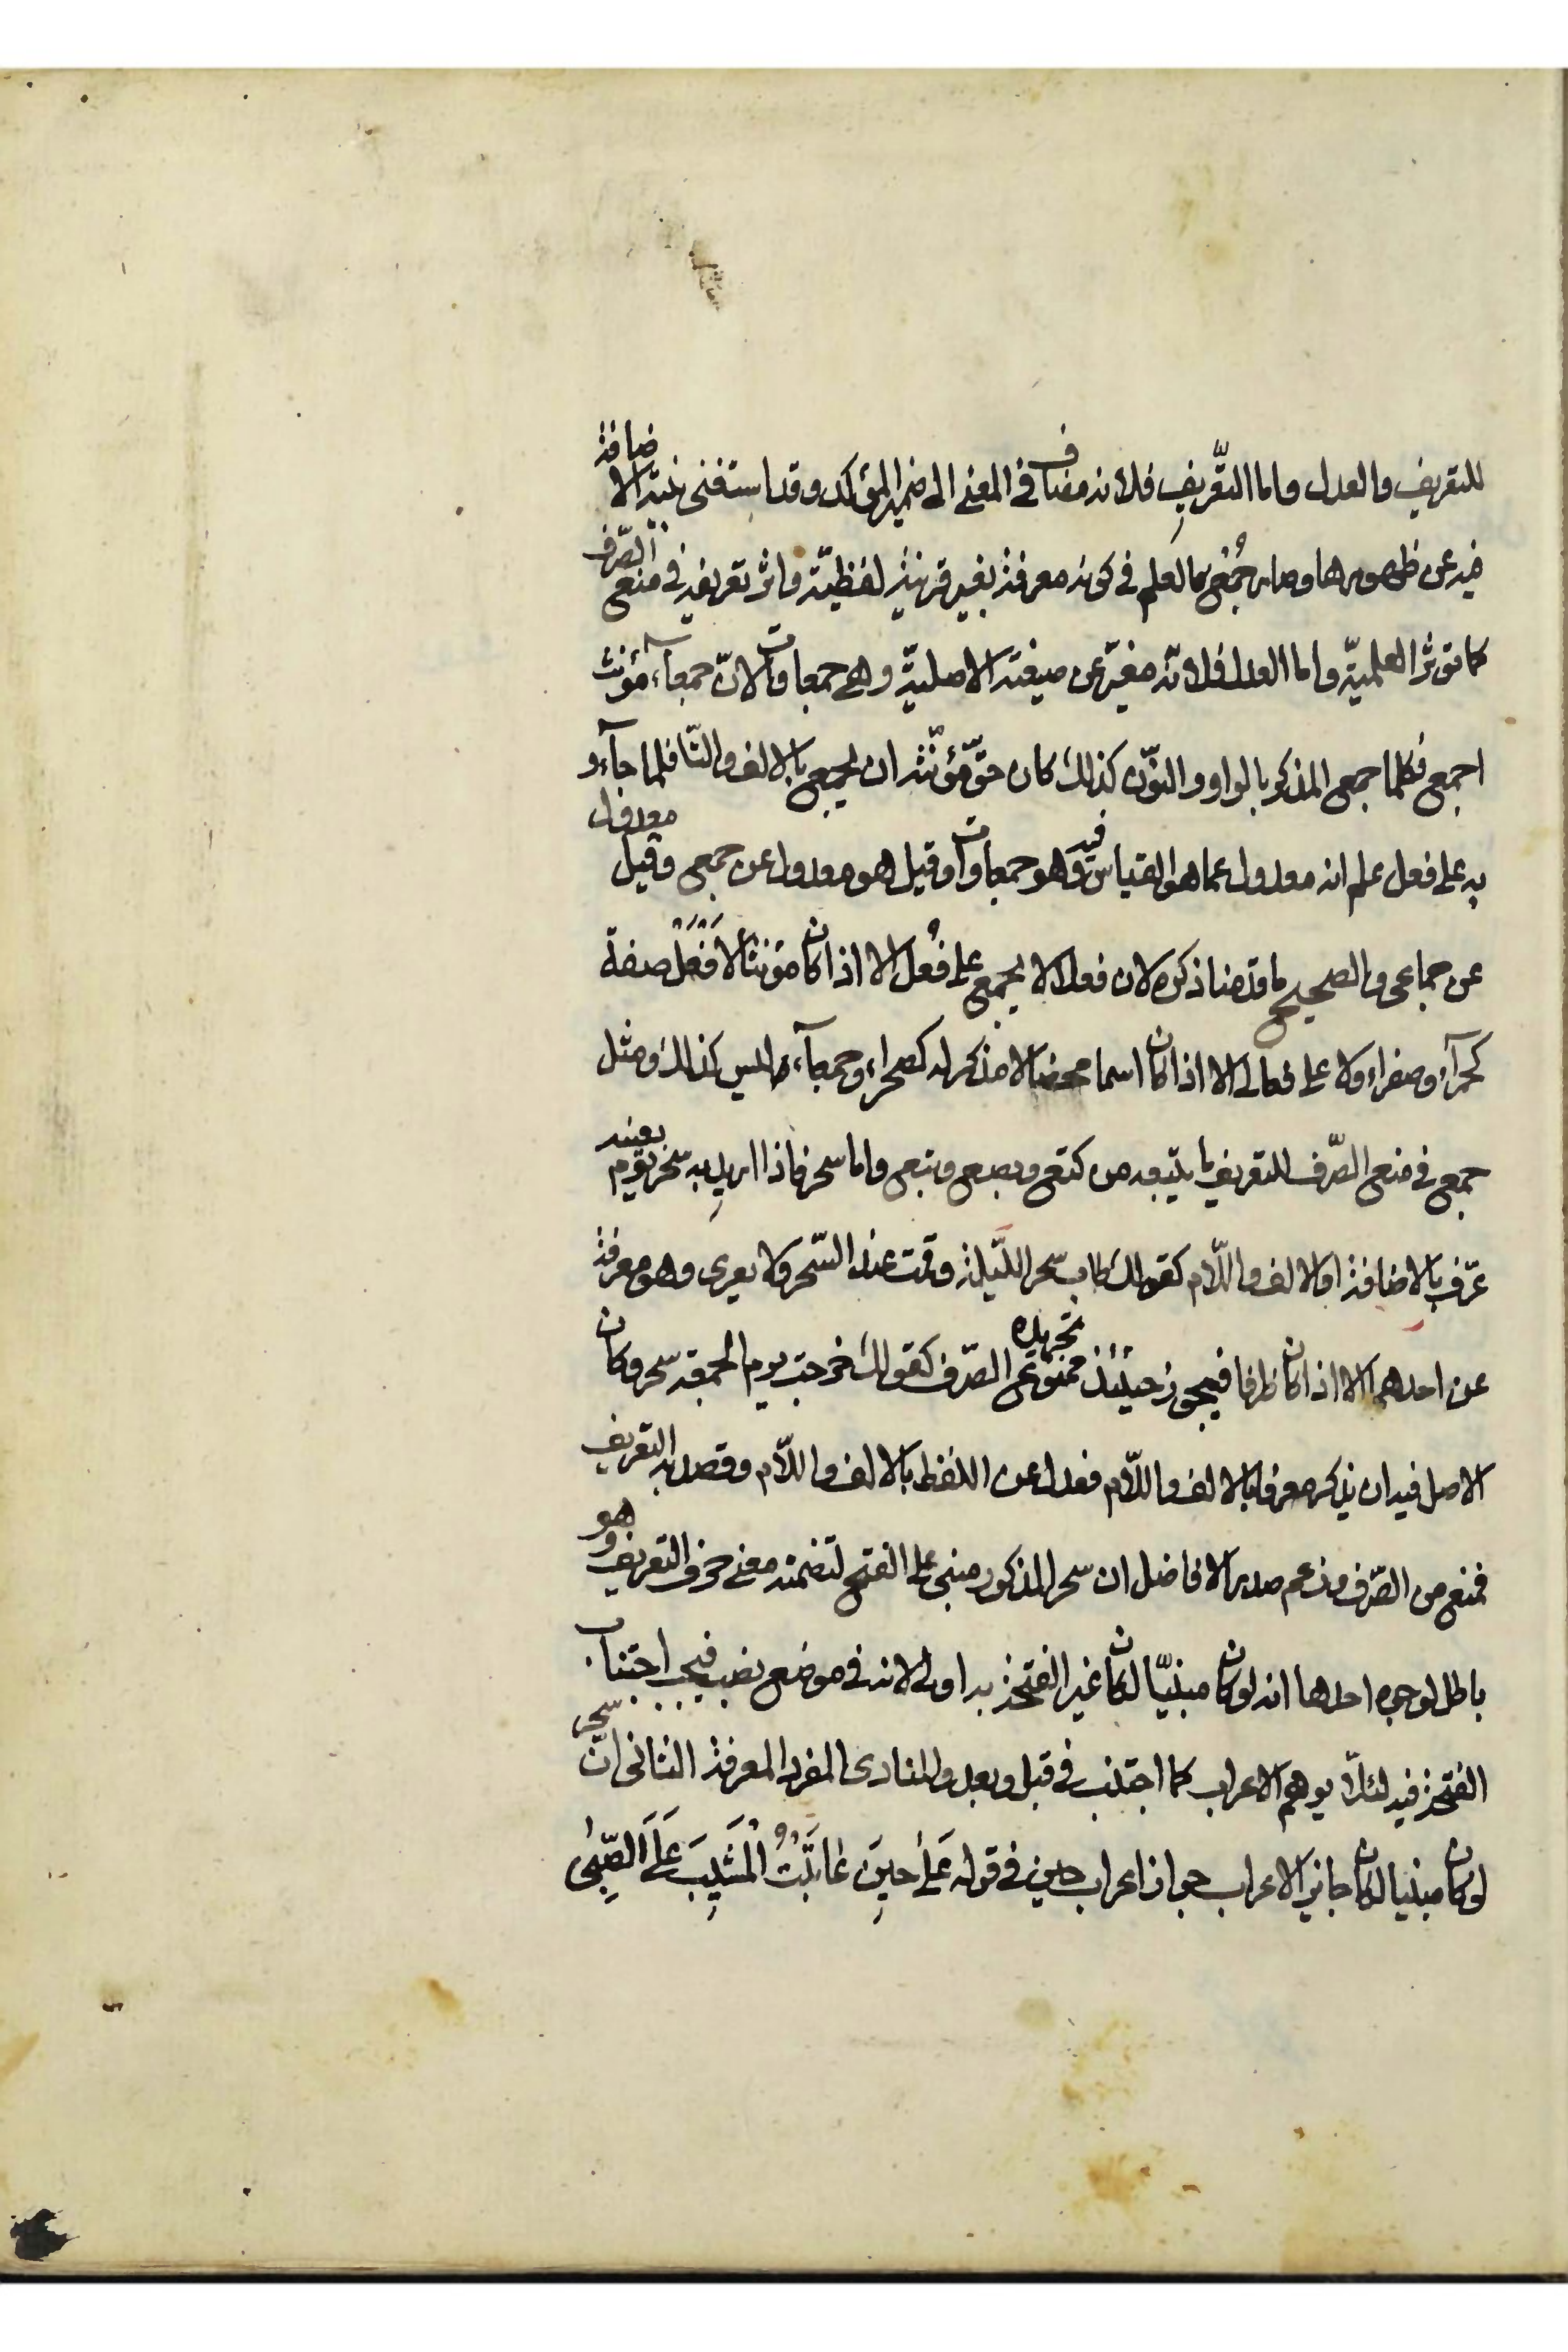 للتعريف والعدل واما التّعريف فلانه مضاف فى المعنى الى ضمير المؤكد وقد استغنى بنية الاضافة
فيه عن ظهورها وصار جُمَع كالعلم فى كونه معرفة بغير قرينة لفظيّة واثر تعريفه فى منع الصّرف
كما تؤثر العلميّة واما العدل فلانّه مغيّر عن صيغته الاصليّة وهى جمعاوات لانّ جمعآء مؤنث
اجمع فكلما جمع المذكر بالواو والنوّن كذلك كان حقّ مؤنّثه ان يجمع بالالف والتّا فلما جآءو
به على فعل علم انه معدول عما هو القياس فيه وهو جمعاوات وقيل هو معدول عن جمع وقيل معدول
عن جماعى والصحيح ما قدمنا ذكره لان فعلاء لا يجمع على فُعل الا اذا كان مؤنثا لاَفْعَلْ صفة
كحمرآء وصفراء ولا على فعالى الا اذا كان اسما محضا لا مذكر له كصحراء وجمعآء ليس كذلك ومثل
جمع فى منع الصّرف للتعريف ما يتبعه من كتع وبصع وبتع واما سحر فاذا اريد به سحر يوم بعينه
عرّف بالاضافة او الالف واللّام كقولك طاب سحر اللّيلة وقمت عند السّحر ولا يعرى وهو معرفة
عن احدهما الا اذا كان ظرفا فيجوز حينئذ تجريده ممنوع الصّرف كقولك خرجت يوم الجمعة سحر وكان
الاصل فيه ان يذكر معرفا بالالف واللّام فعدل عن اللفظ بالالف واللّام وقصد به التعريف
فمنع من الصّرف وزعم صدر الافاضل ان سحر المذكور مبنى على الفتح لتضمنه معنى حرف التعريف وهو
باطل لوجوه احدها انه لوكان مبنيّا لكان غير الفتحة به اولى لانه فى موضع نصب فيجب اجتناب
الفتحة فيه لئلاّ يوهم الاعراب كما اجتنب فى قبل وبعد والمنادى المفرد المعرفة الثانى انّ سحر
لوكان مبنيا لكان جايز الاعراب جواز اعراب حين فى قوله عَلَى حينَ عَاتَبْتُ الْمَشيبَ عَلَى الصِّبى